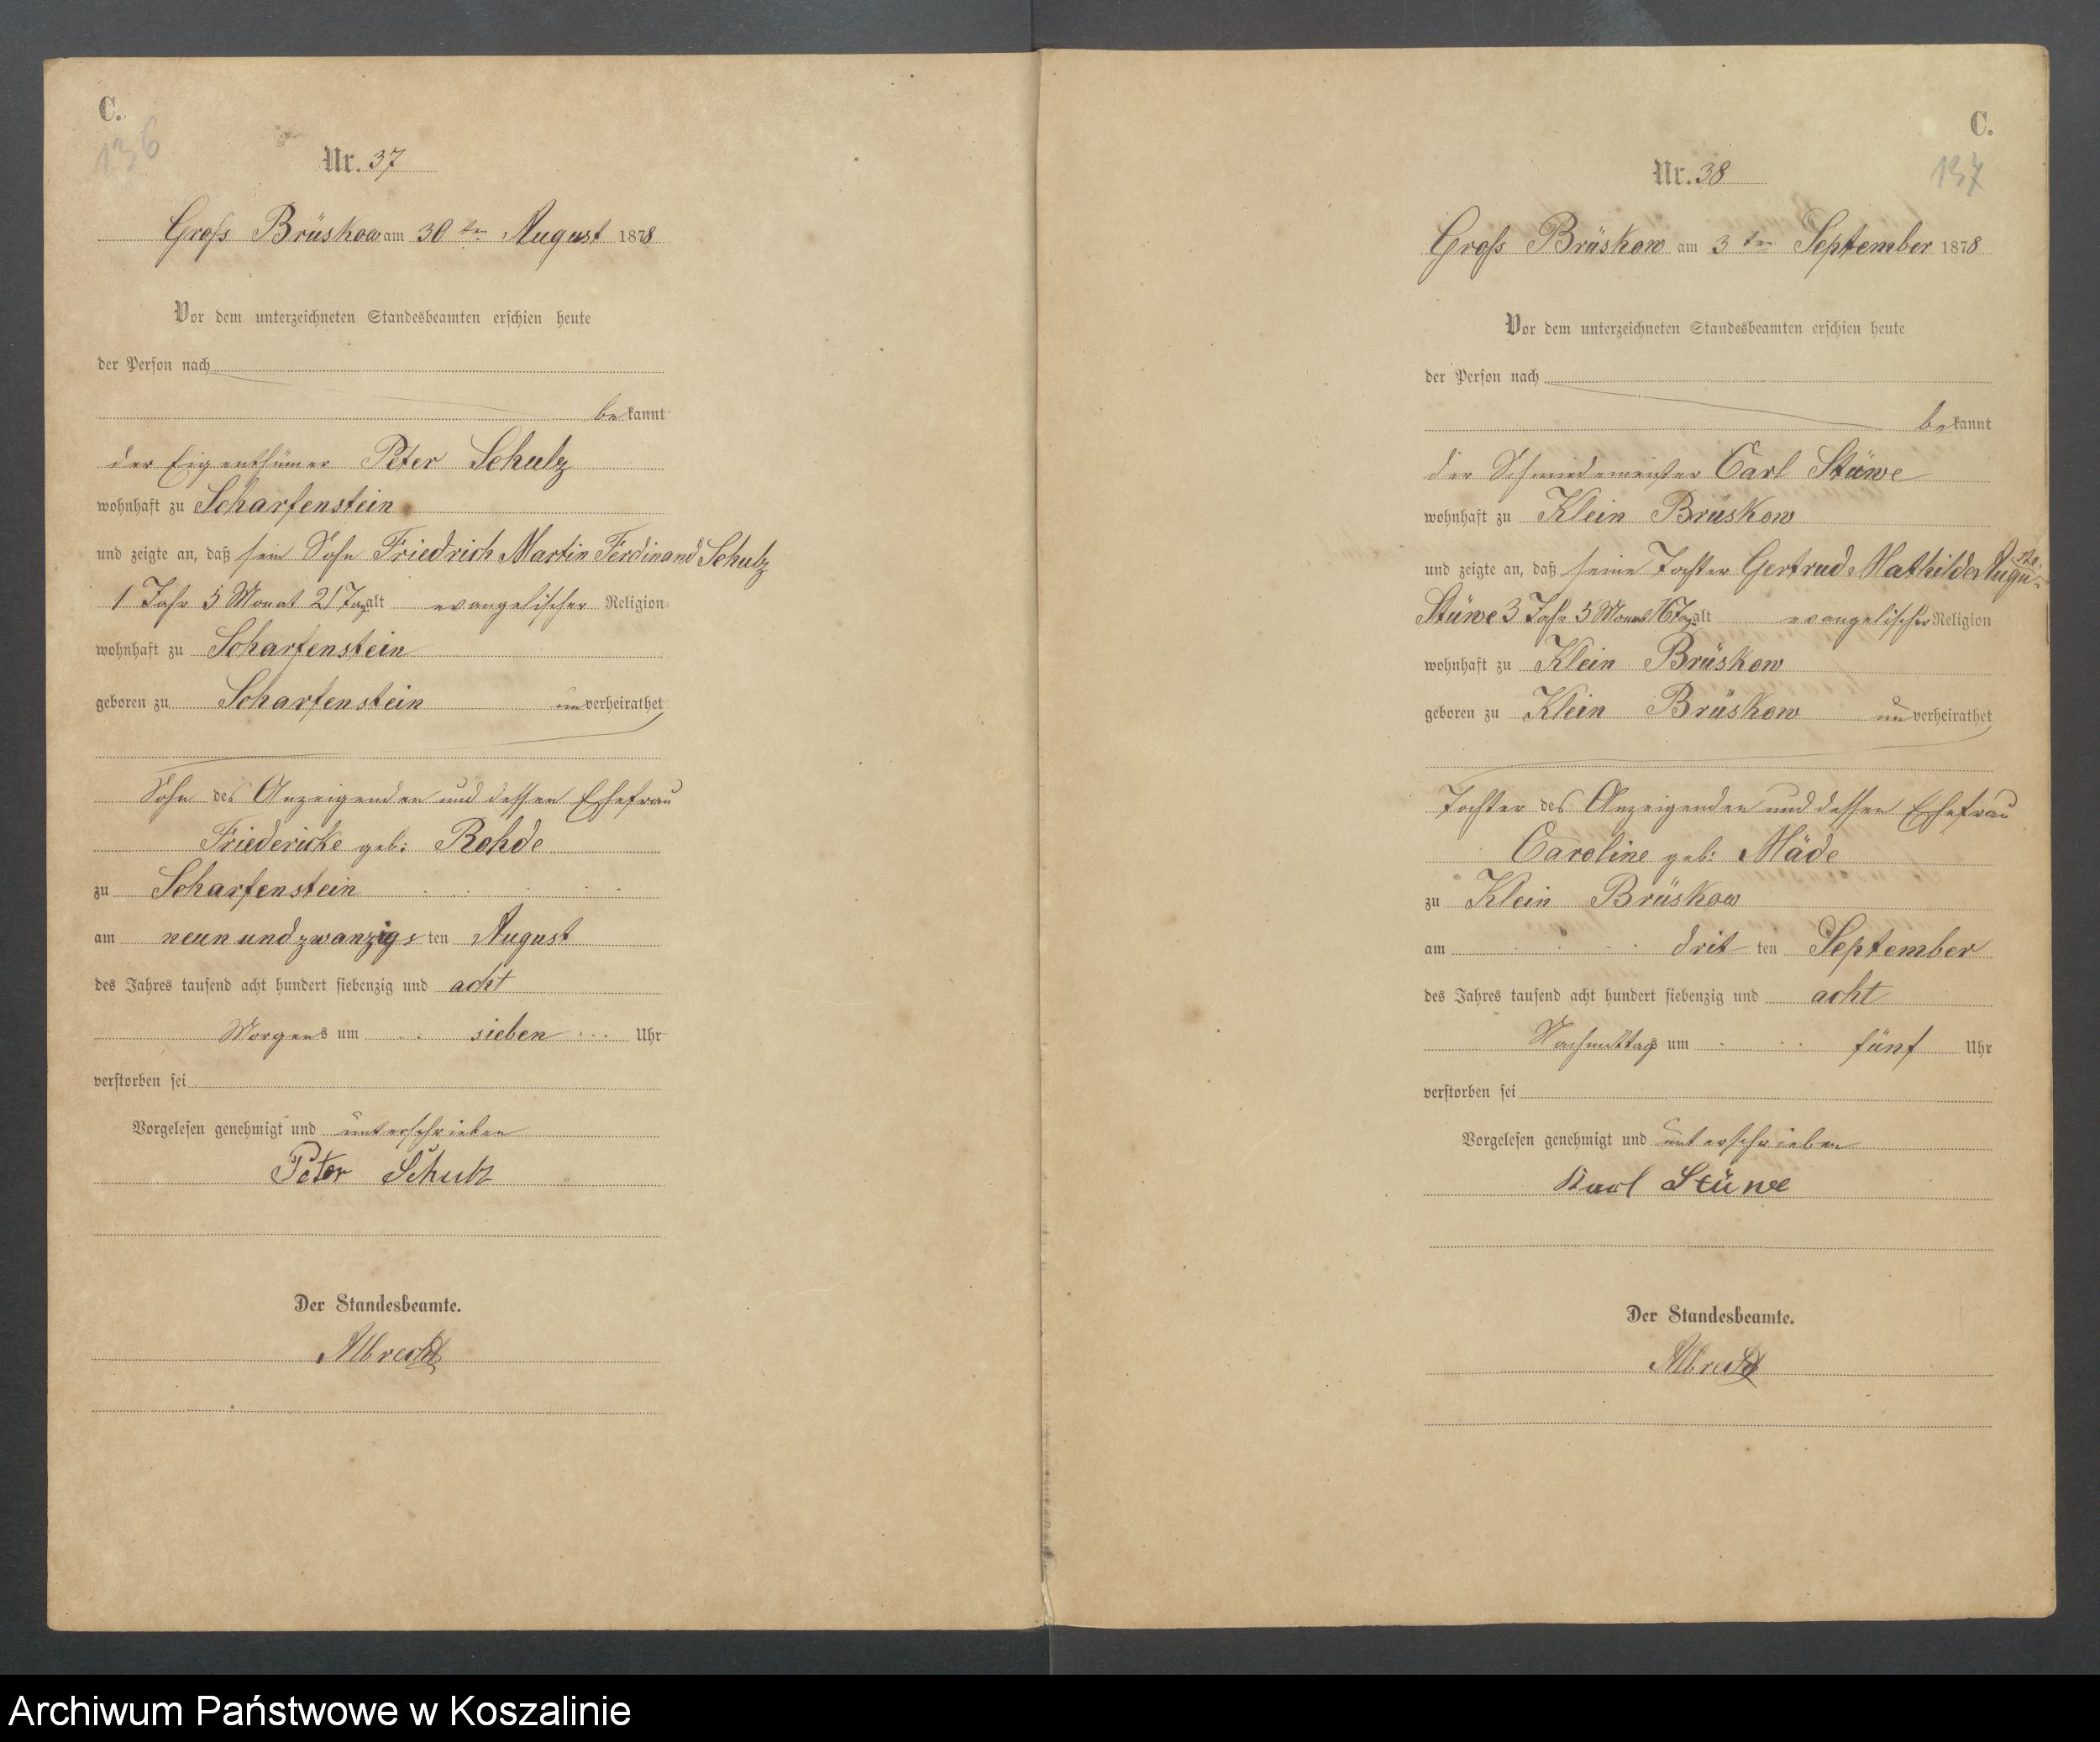 C.
136
Nr. 37
Groſs Brüskow am 30ten August 1878
Vor dem unterzeichneten Standesbeamten erſchien heute
der Perſon nach
bekannt
der Eigenthümer Peter Schulz
wohnhaft zu Scharfenstein
und zeigte an, daß sein Sohn Friedrich Martin Ferdinand Schulz
1 Jahr 5 Monat 21 Tag alt evangelischer Religion
wohnhaft zu Scharfenstein
geboren zu Scharfenstein unverheirathet
Sohn des Anzeigenden und dessen Ehefrau
Friedericke geb: Rohde
zu Scharfenstein
am neun und zwanzigsten August
des Jahres tauſend acht hundert ſiebenzig und acht
Morgens um sieben Uhr
verſtorben ſei
Vorgeleſen genehmigt und unterschrieben
Peter Schulz
Der Standesbeamte.
Albrecht
C.
137
Nr. 38
Groſs Brüskow am 3ten September 1878
Vor dem unterzeichneten Standesbeamten erſchien heute
der Perſon nach
bekannt
der Schmiedemeister Carl Stüwe
wohnhaft zu Klein Brüskow
und zeigte an, daß seine Tochter Gertrud Mathilde Auguste
Stüwe 3 Jahr 5 Monat 16 Tag alt evangelischer Religion
wohnhaft zu Klein Brüskow
geboren zu Klein Brüskow unverheirathet
Tochter des Anzeigenden und dessen Ehefrau
Caroline geb: Mäde
zu Klein Brüskow
am dritten September
des Jahres tauſend acht hundert ſiebenzig und acht
Nachmittags um fünf Uhr
verſtorben ſei
Vorgeleſen genehmigt und unterschrieben
Karl Stüwe
Der Standesbeamte.
Albrecht
Archiwum Państwowe w Koszalinie